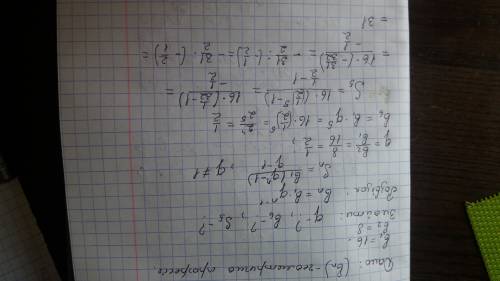 Дано: (bₙ) - геометрична прогресія.
b₁ = 16.
b₂ = 8
Знайти: q - ?, b₆ - ?, S₅ - ?
bₙ = b₁ · qⁿ⁻¹
Sₙ = b₁(qⁿ-1) / q-1, q ≠ 1
q = b₂/b₁ = 8/16 = 1/2,
b₆ = b₁ · q⁵ = 16 · (1/2)⁵ = 2⁴/2⁵ = 1/2
S₅ = 16 · ((1/2)⁵ - 1) / (1/2 - 1) = 16 · (1/32 - 1) / (-1/2) =
= 16 · (-31/32) / (-1/2) = - 31/2 : (- 1/2) = - 31/2 · (- 2/1) =
= 31